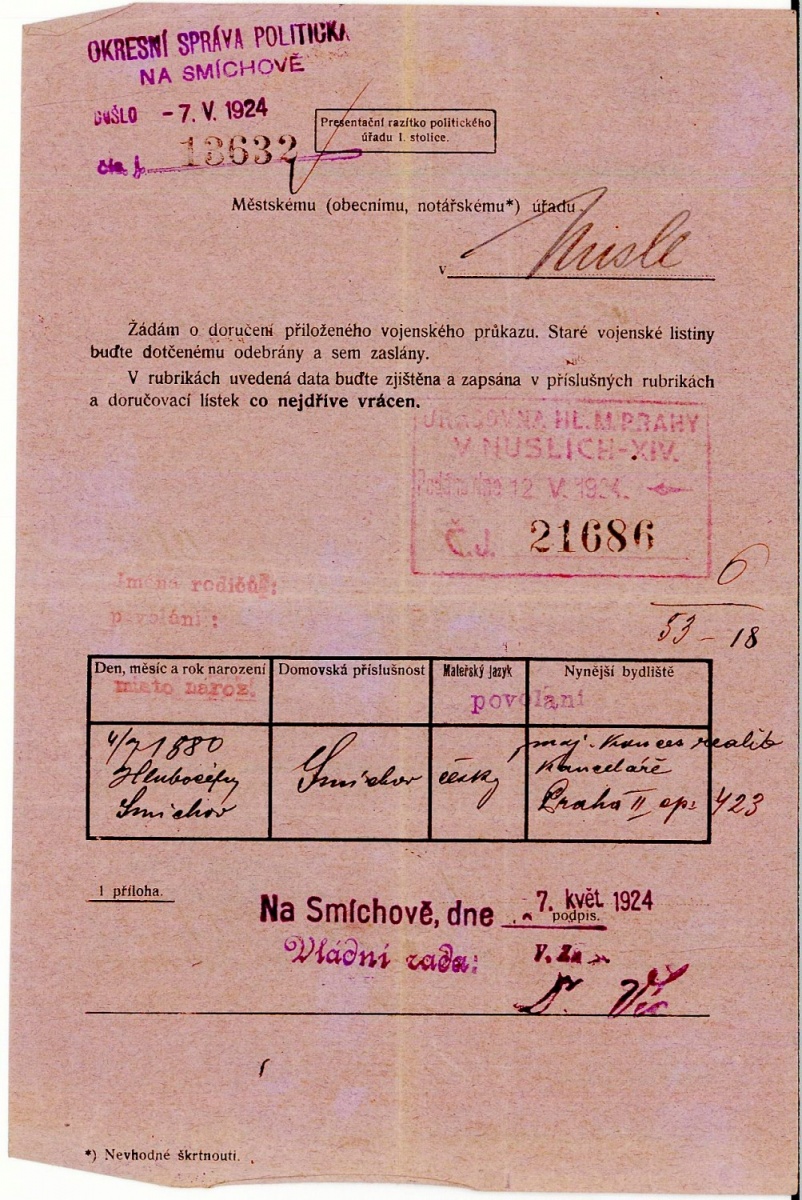 OKRESNÍ SPRÁVA POLITICKÁ
NA SMÍCHOVĚ
DOŠLO -7. V. 1924
čís. j. 13632
Presentační razítko politického
úřadu I. stolice.
Městskému (obecnímu, notářskému*) úřadu
v Nusle
Žádám o doručení přiloženého vojenského průkazu. Staré vojenské listiny
buďte dotčenému odebrány a sem zaslány.
V rubrikách uvedená data buďte zjištěna a zapsána v příslušných rubrikách
a doručovací lístek co nejdříve vrácen.
ÚŘADOVNA HL. M. PRAHY
V NUSLÍCH-XIV.
Podáno dne 12. V. 1924.
Č.J. 21686
6
53-18
Jména rodičů:
povolání:
Den, měsíc a rok narození Domovská příslušnost Mateřský jazyk Nynější bydliště
místo naroz. povolání
4/7 1880 Smíchov český maj. konces realit
Hlubočepy kanceláře
Smíchov Praha II čp: 423
1 příloha.
Na Smíchově, dne 7. květ 1924
podpis.
Vládní rada: V. Za
Dr.
*) Nevhodné škrtnouti.